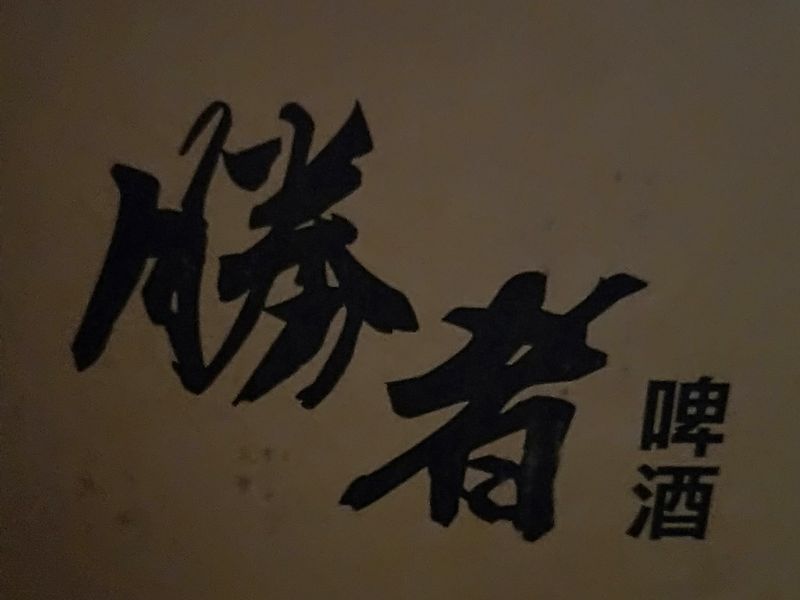 勝者
啤酒